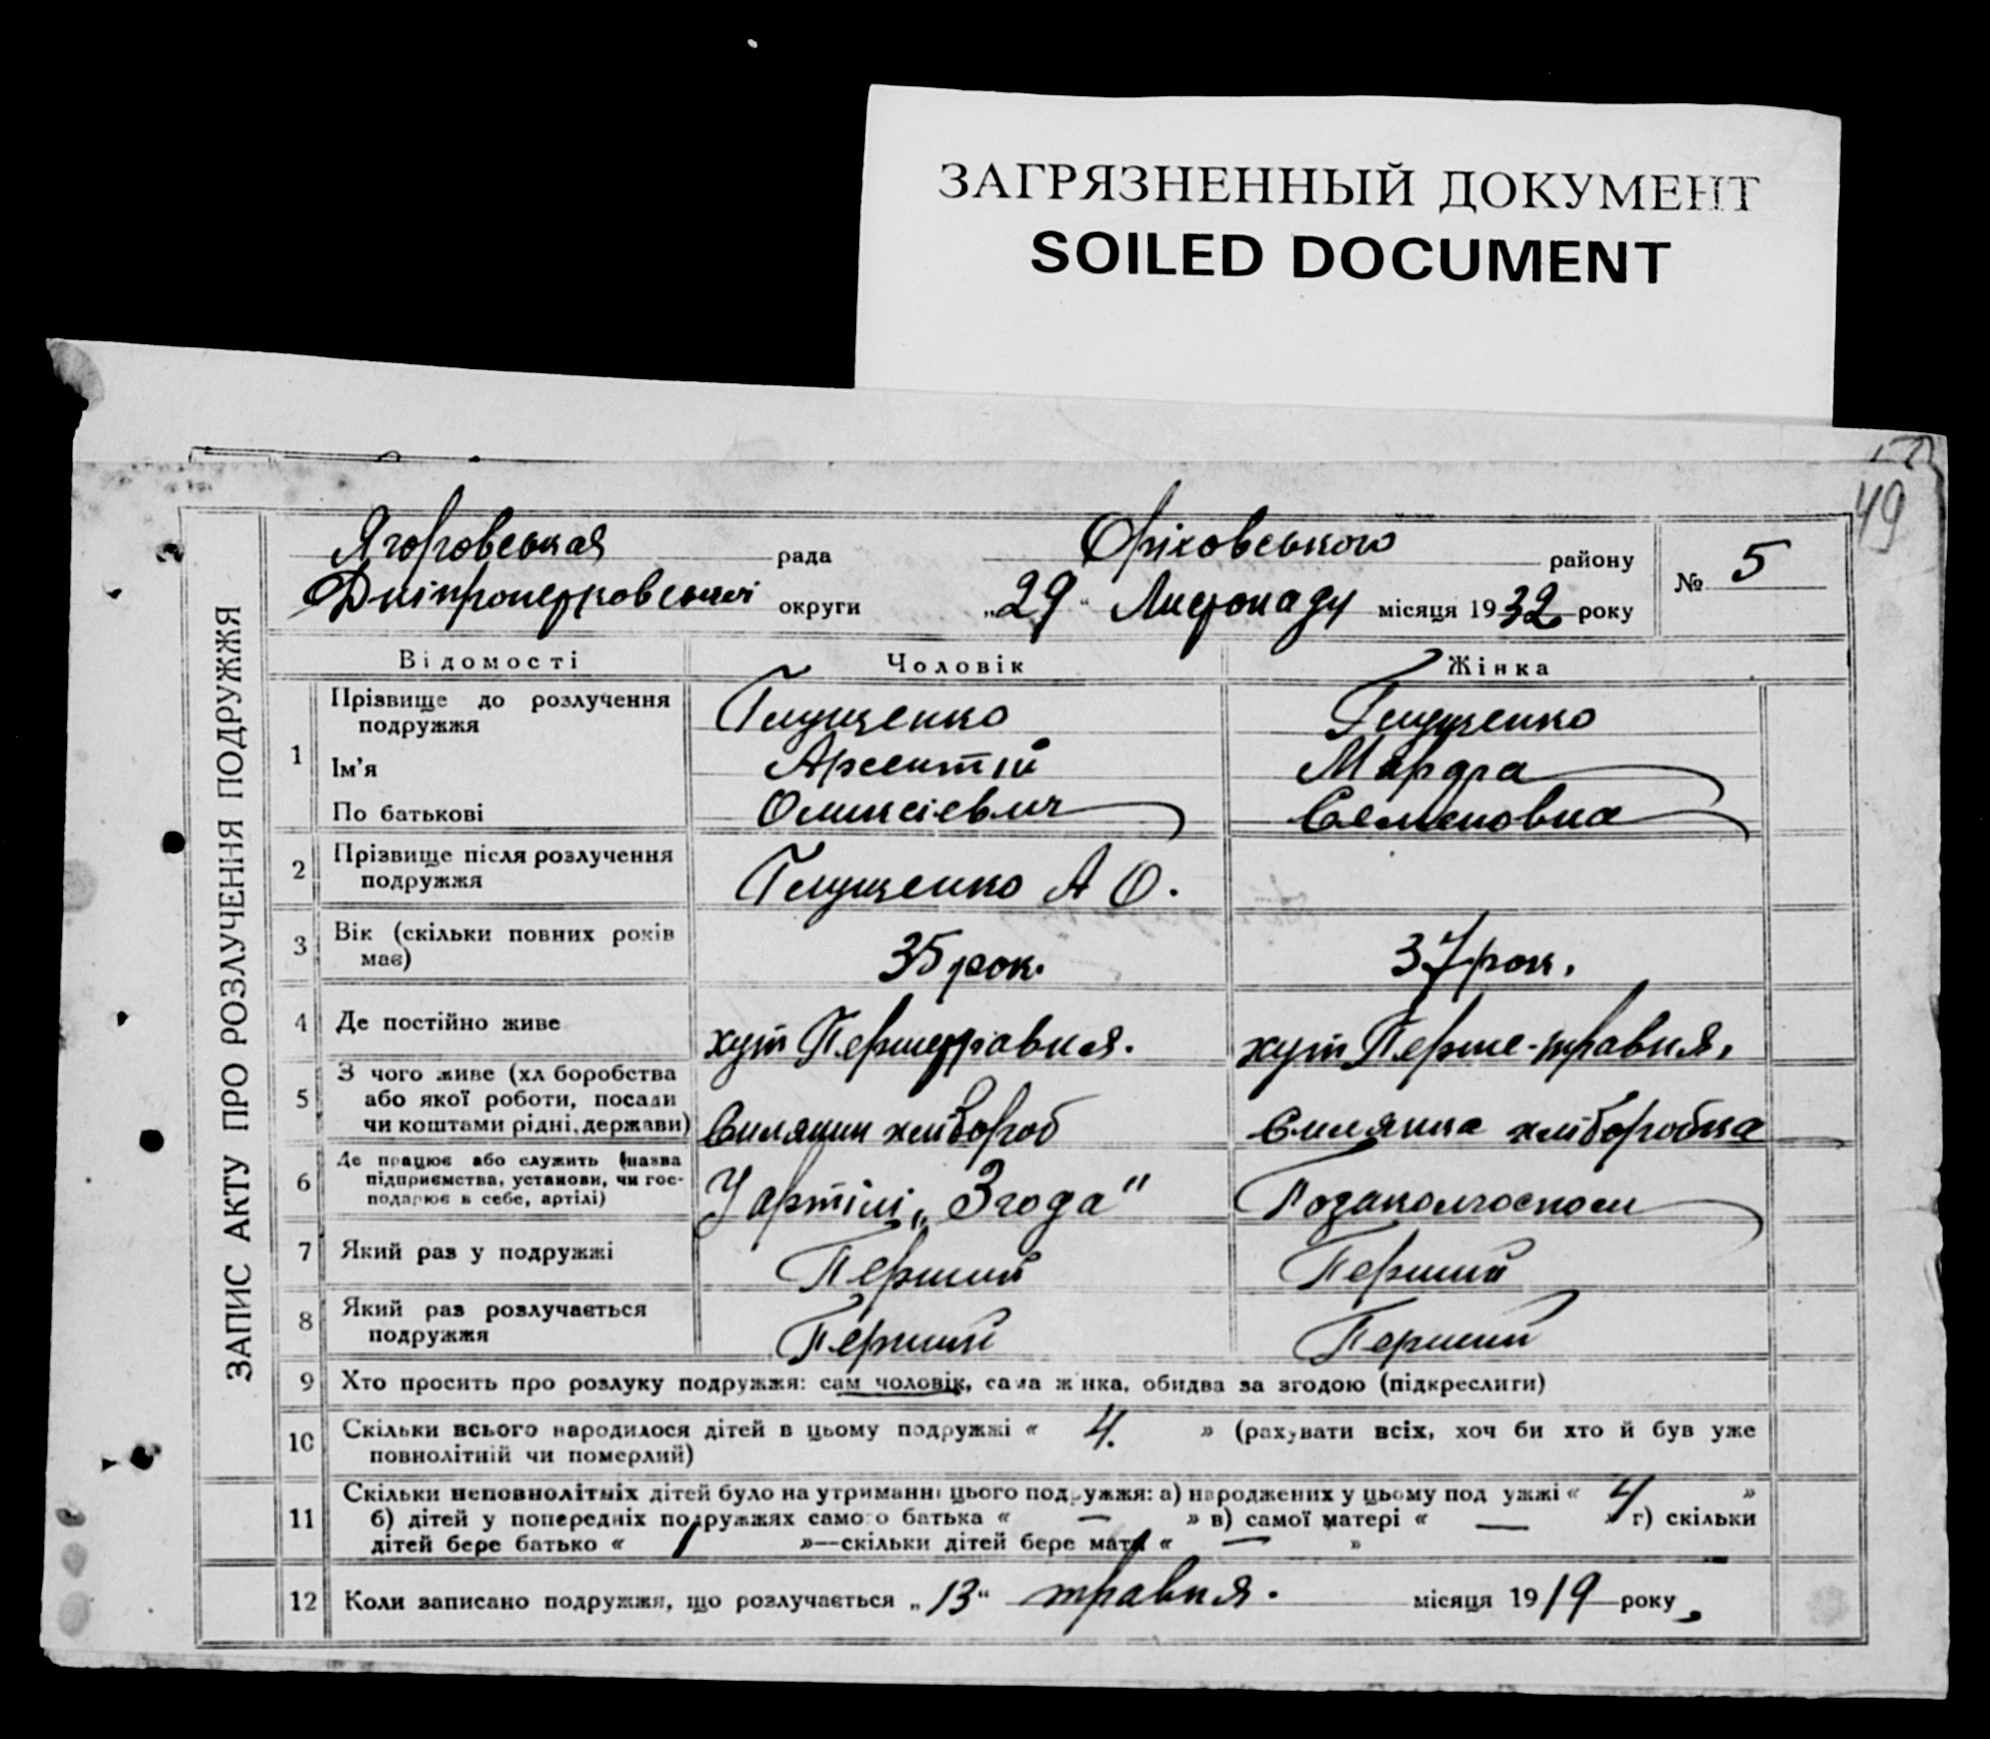 ЗАГРЯЗНЕННЫЙ ДОКУМЕНТ
SOILED DOCUMENT
49
ЗАПИС АКТУ ПРО РОЗЛУЧЕННЯ ПОДРУЖЖЯ
Ягоровськая рада Оріховського району № 5
Дніпропетровської округи „29“ Листопаду місяця 1932 року
Відомості Чоловік Жінка
1 Прізвище до розлучення подружжя Глущенко Глущенко
Ім'я Арсентій Марфа
По батькові Олексієвич Семеновна
2 Прізвище після розлучення подружжя Глущенко А О.
3 Вік (скільки повних років має) 35 рок. 37 рок.
4 Де постійно живе хут Першетравня. хут Перше-травня.
5 З чого живе (хл боробства або якої роботи, посади чи коштами рідні, держави) Силянин хлібороб Силянка хліборобка
6 Де працює або служить (назва підприємства, установи, чи господарює в себе, артілі) У артілі „Згода" Позаколгоспом
7 Який раз у подружжі Перший Перший
8 Який раз розлучається подружжя Перший Перший
9 Хто просить про розлуку подружжя: сам чоловік, сама жінка, обидва за згодою (підкреслити)
10 Скільки всього народилося дітей в цьому подружжі « 4. » (рахувати всіх, хоч би хто й був уже
повнолітній чи померлий)
11 Скільки неповнолітніх дітей було на утриманні цього подружжя: а) народжених у цьому подружжі « 4 »
б) дітей у попередніх подружжях самого батька « — » в) самої матері « — » г) скільки
дітей бере батько « / »—скільки дітей бере мати « — »
12 Коли записано подружжя, що розлучається „13“ травня. місяця 1919 року